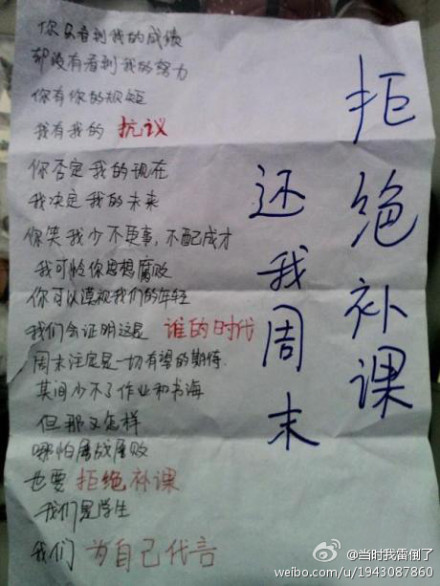 你只看到我的成绩
却没有看到我的努力
你有你的规矩
我有我的 抗议
你否定我的现在
我决定我的未来
你笑我少不更事，不配成才
我可怜你思想腐败
你可以漠视我们的年轻
我们会证明这是 谁的时代
周末注定是一切有望的期待
其间少不了作业和书海
但那又怎样
哪怕屡战屡败
也要 拒绝补课
我们是学生
我们 为自己代言
拒绝补课
还我周末
@当时我雷倒了
weibo.com/u/1943087860